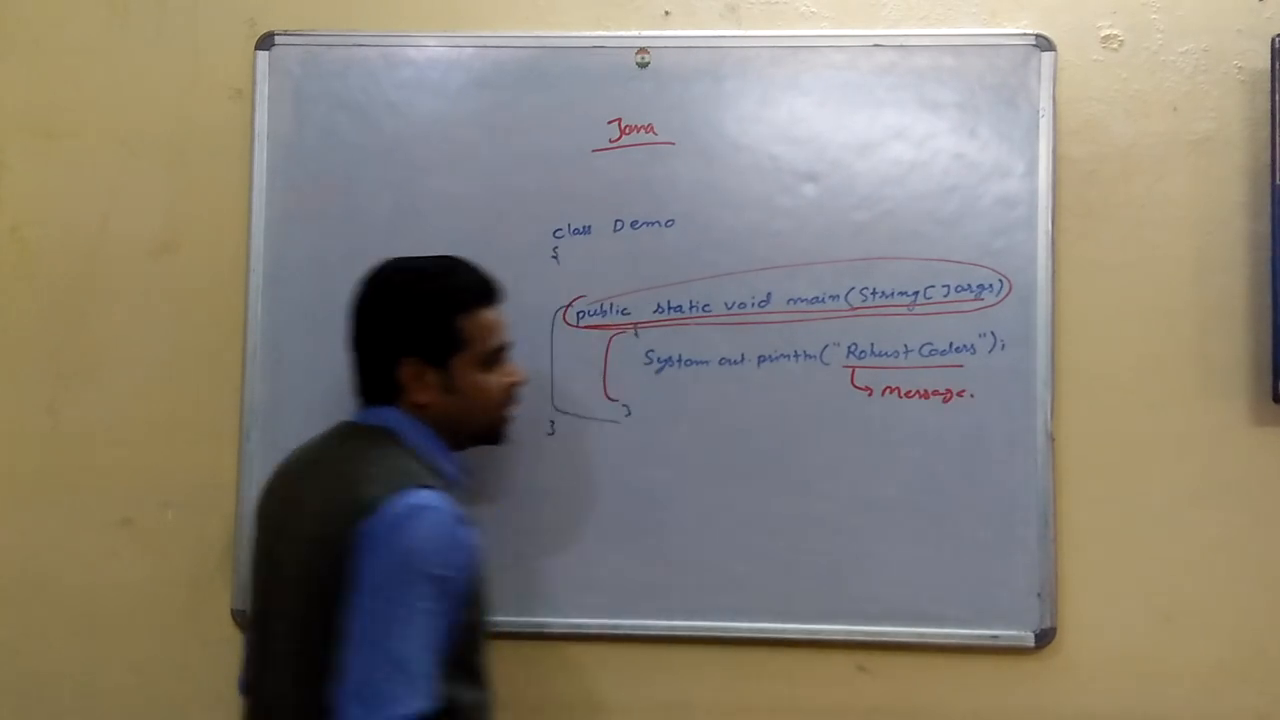 Java
class Demo
{
public static void main(String[]args)
{
System.out.println("Robust Coders");
→ Message.
}
}